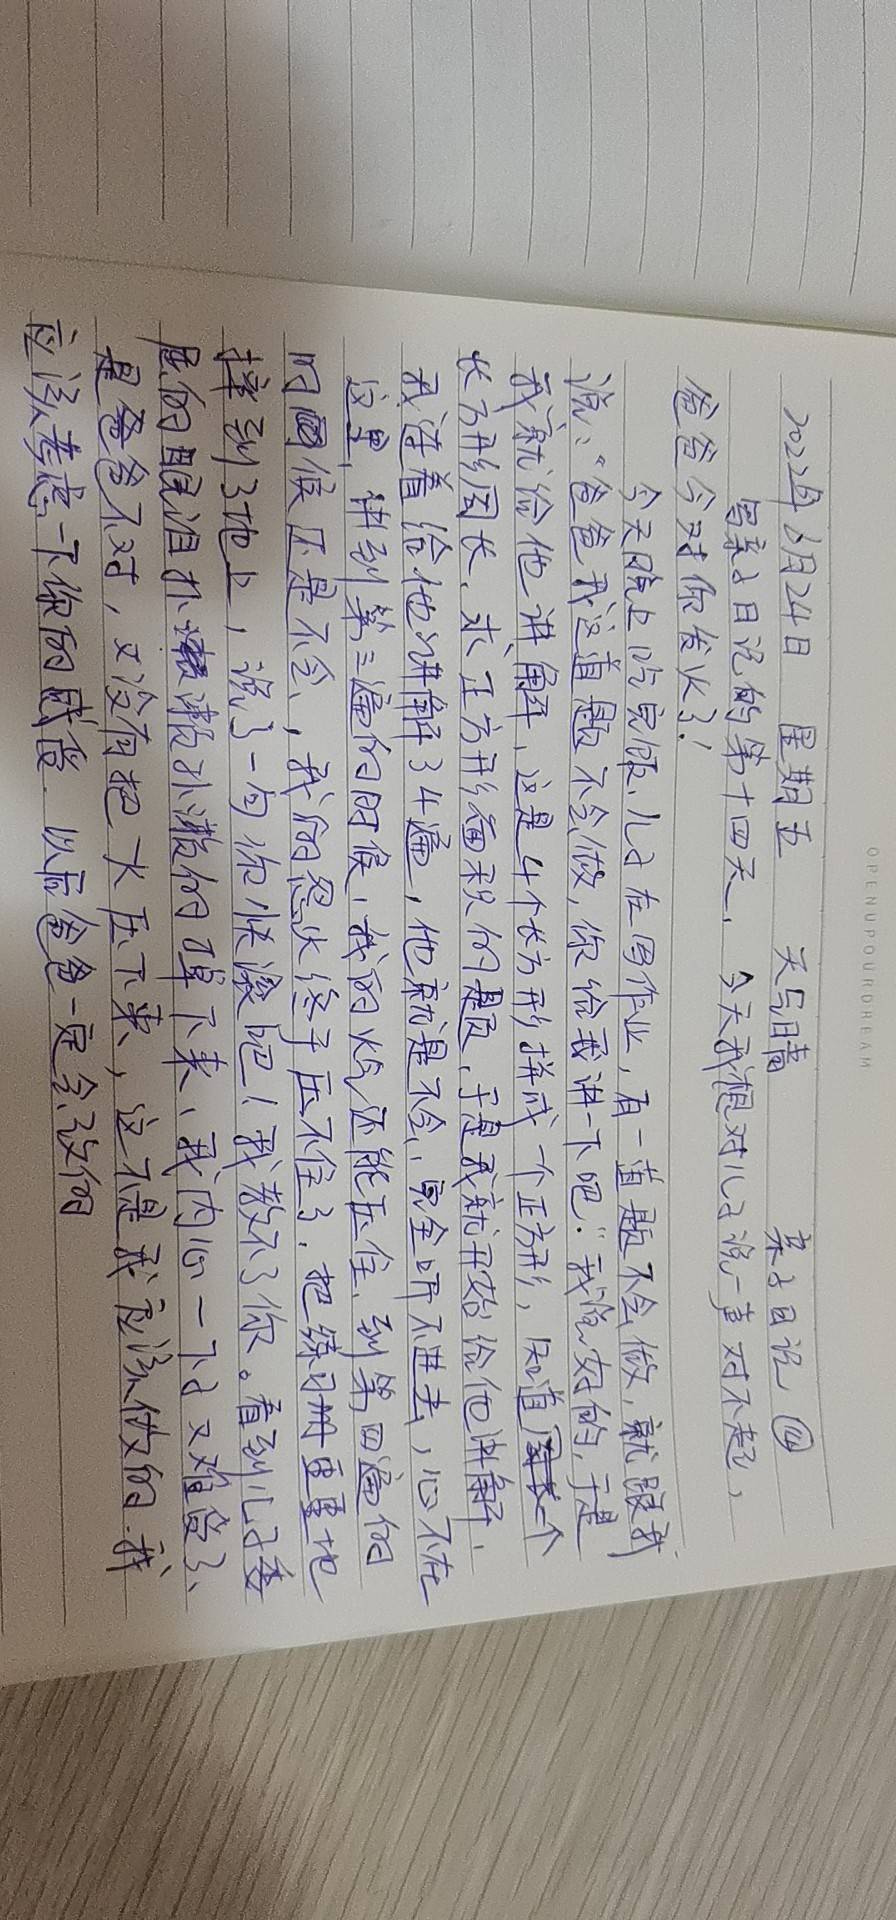 OPENUPOURDREAM
2022年6月24日 星期五 天气晴 亲子日记 ⑭
写亲子日记的第十四天、今天我想对儿子说一声对不起，
爸爸今对你发火了！
今天晚上吃完饭、儿子在写作业，有一道题不会做，就跟我
说：“爸爸我这道题不会做，你给我讲一下吧.”我说好的，于是
我就给他讲解、这是4个长方形拼成一个正方形、知道一个
长方形周长、求正方形面积的题，于是我就开始给他讲解.
我连着给他讲解了4遍，他就是不会，完全听不进去，心不在
这里，讲到第三遍的时候，我的火气还能压住、到第四遍的
的候还是不会，我的怒火终于压不住了．把练习册重重地
摔到了地上，说了一句你快滚吧！我教不了你。看到儿子委
屈的眼泪扑漱扑漱的掉下来、我内心一下子又难受了、
是爸爸不对，又没有把火压下来，这不是我应该做的．我
应该考虑一下你的感受．以后爸爸一定会改的